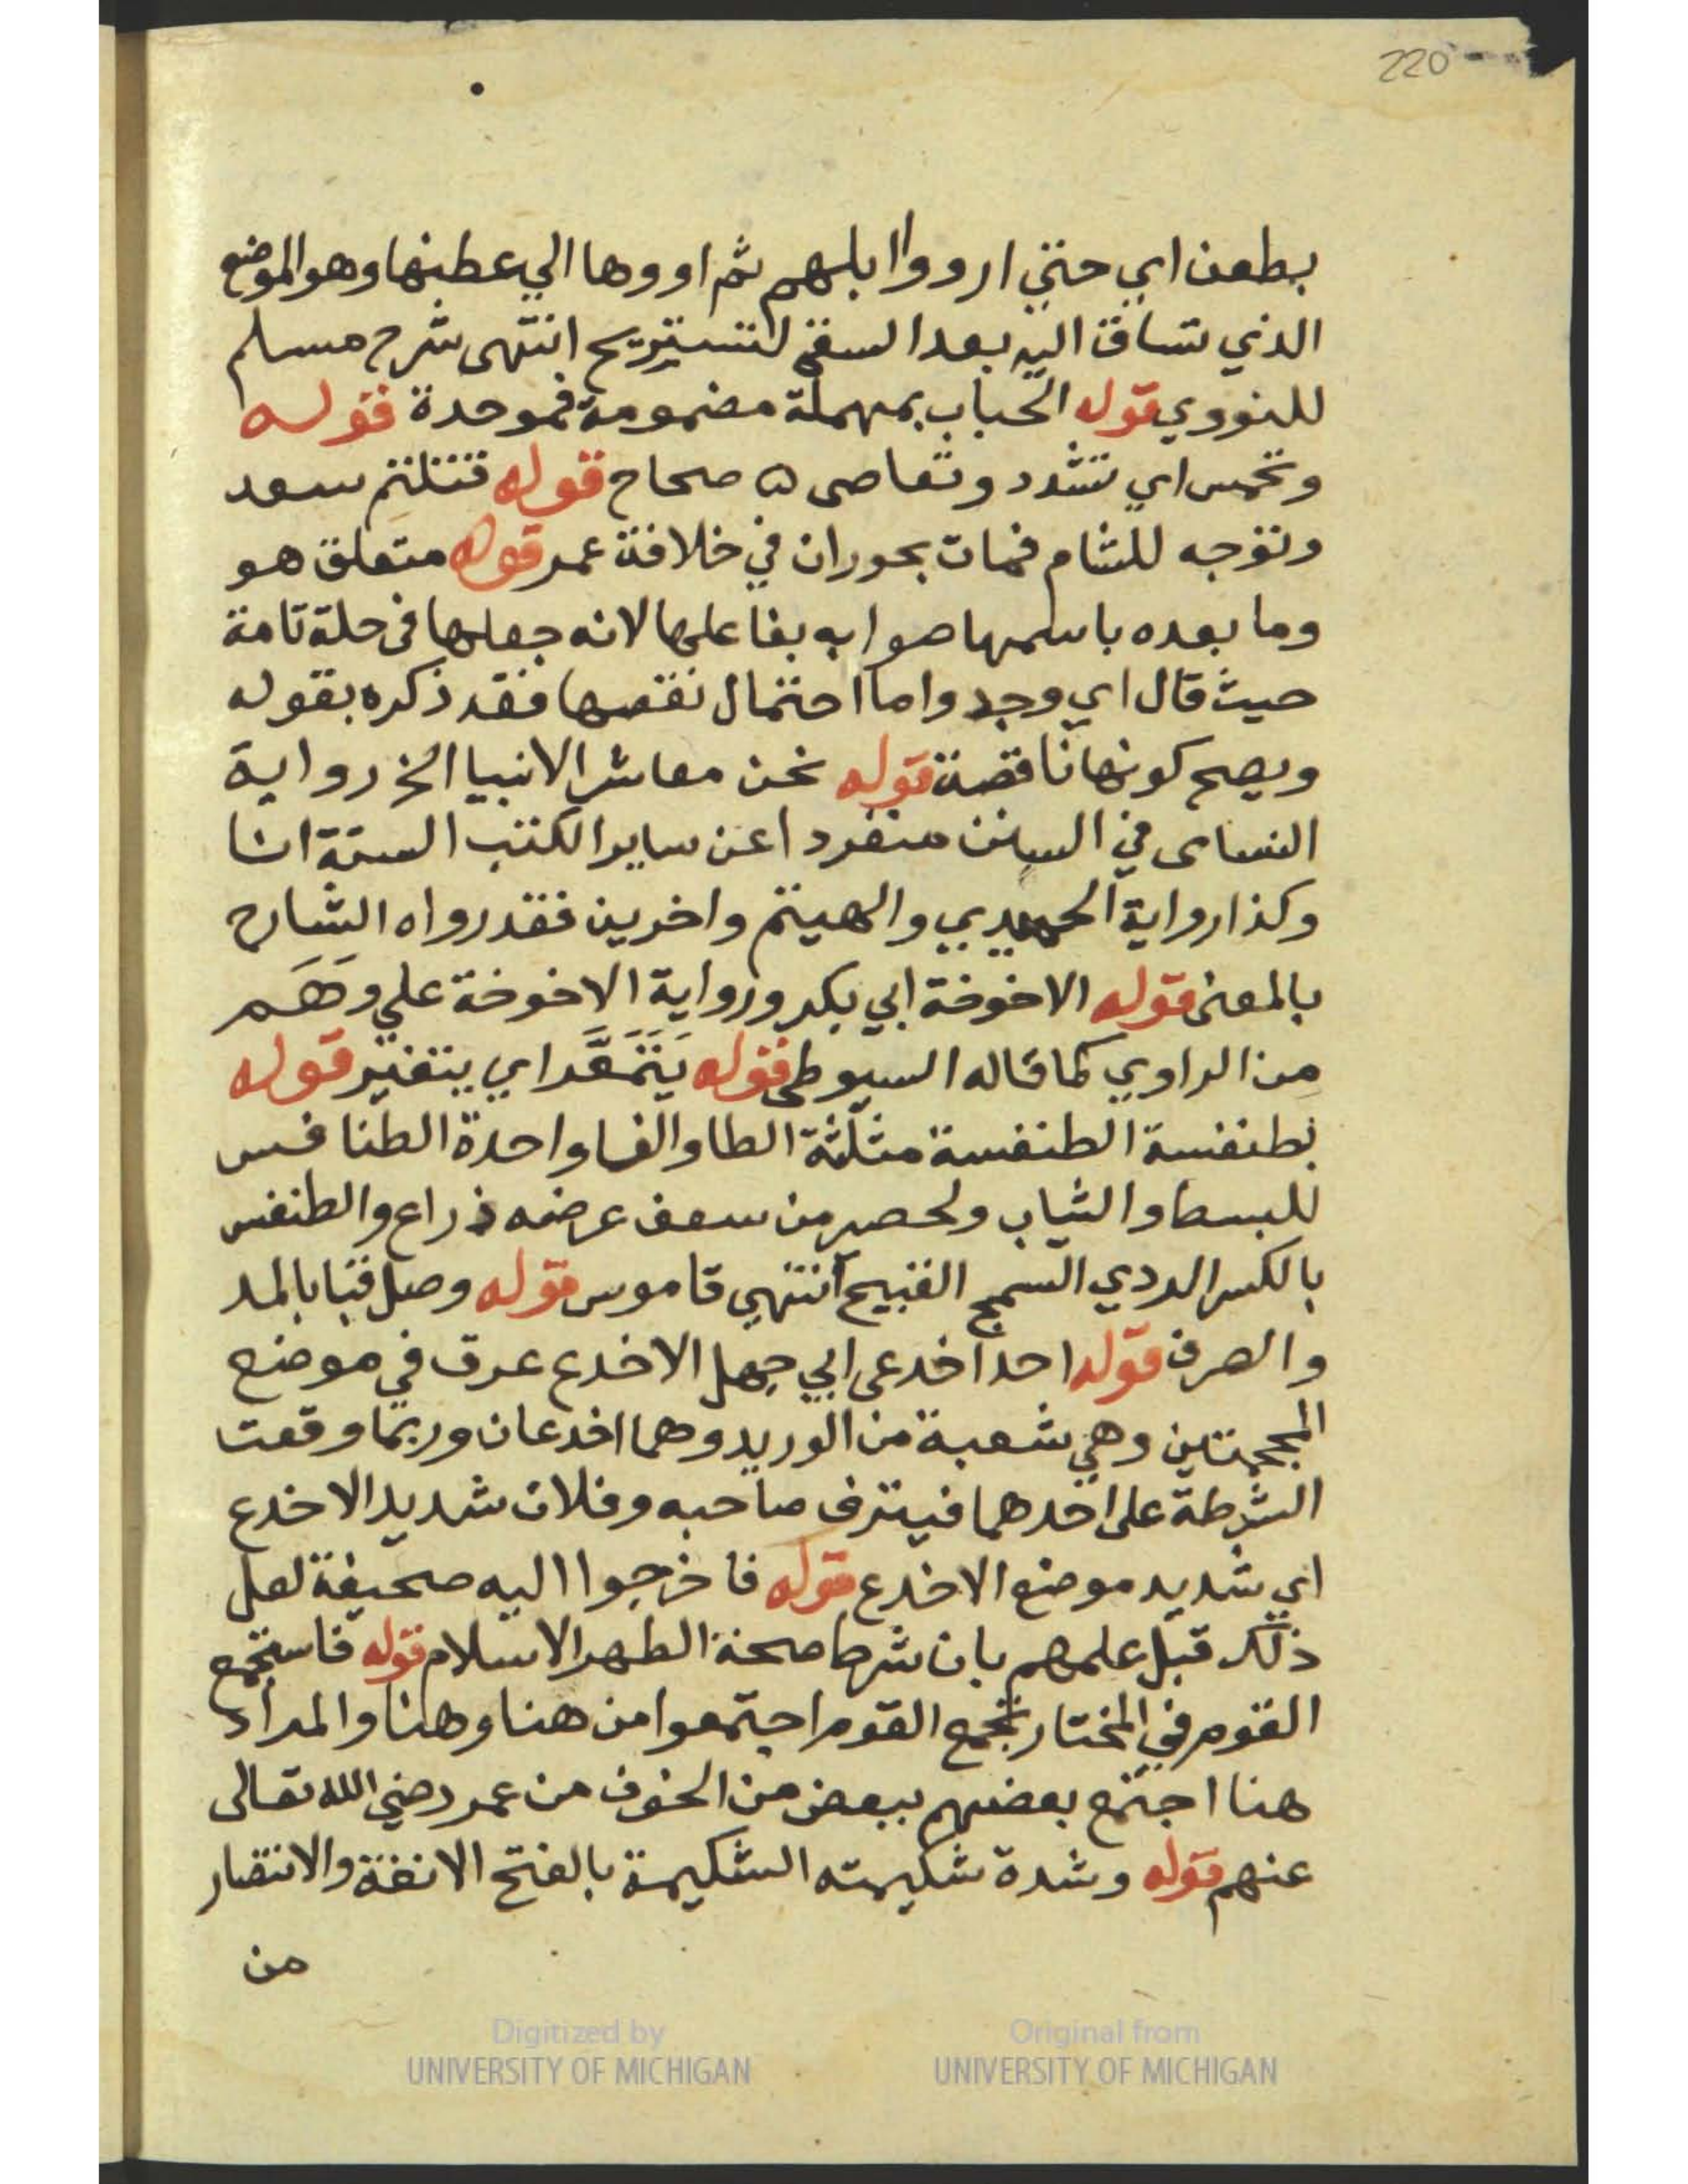 220
بطعن اي حتي ارووا ابلهم ثم اووها الي عطنها وهو الموضع
الذي تساق اليه بعد السقي لتستريح انتهى شرح مسلم
للنووي قوله الحباب بمهملة مضمومة فموحدة قوله
وتحمس اي تشدد وتعاصى ه صحاح قوله قتلتم سعد
وتوجه للشام فمات بحوران في خلافة عمر قوله متعلق هو
وما بعده باسمها صوابه بفاعلها لانه جعلها في حلة تامة
حيث قال اي وجد واما احتمال نقصها فقد ذكره بقوله
ويصح كونها ناقصة قوله نحن معاشر الانبيا الخ رواية
النساى في السنن منفردا عن ساير الكتب الستة انا
وكذا رواية الحميدي والهيتم واخرين فقد رواه الشارح
بالمعنى قوله الاخوخة ابي بكر ورواية الاخوخة علي وَهَم
من الراوي كما قاله السيوطى قوله يَتَمَعَّر اي يتغير قوله
بطنفسة الطنفسة مثلثة الطا والفا واحدة الطنافس
للبسط والثياب ولحصر من سعف عرضه ذراع والطنفس
بالكسر الردي السمج القبيح انتهي قاموس قوله وصل قبا بالمد
والصرف قوله احد اخدعى ابي جهل الاخدع عرق في موضع
المحجمتين وهي شعبة من الوريد وهما اخدعان وربما وقعت
الشرطة على احدهما فينزف صاحبه وفلان شديد الاخدع
اي شديد موضع الاخدع قوله فاخرجوا اليه صحيفة لعل
ذلك قبل علمهم بان شرط صحة الطهر الاسلام قوله فاستجمع
القوم في المختار تجمع القوم اجتمعوا من هنا وهنا والمراد
هنا اجتمع بعضهم ببعض من الخوف من عمر رضي الله تعالى
عنهم قوله وشدة شكيمته الشكيمة بالفتح الانفة والانتصار
من
Digitized by
UNIVERSITY OF MICHIGAN
Original from
UNIVERSITY OF MICHIGAN